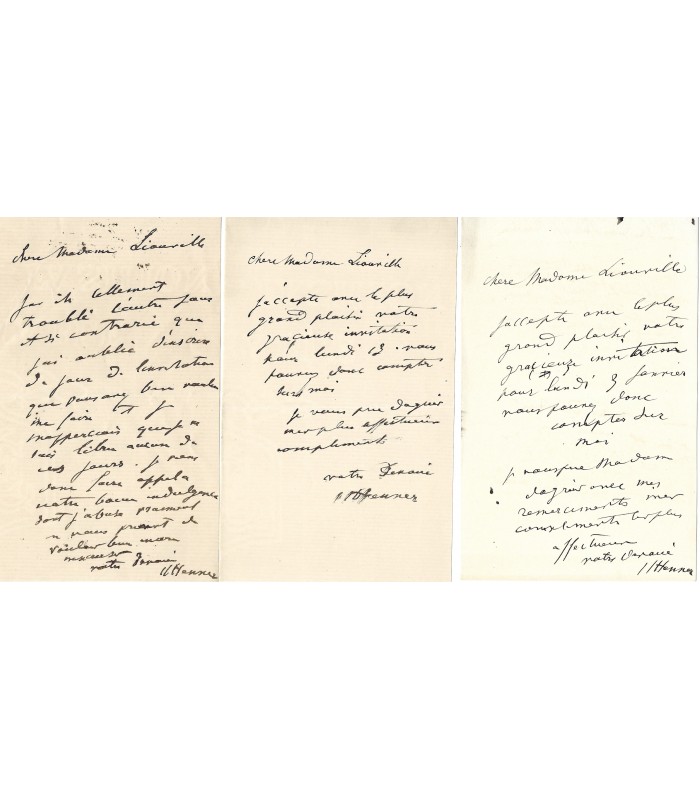 chere Madame Liouville
J'ai été tellement
troublé l'autre jour
et si contrarié que
j'ai oublié d'inscrire
le jour de l'invitation
que vous avez bien voulu
me faire et je
m'apperçois que je ne
suis libre aucun de
ces jours. Je viens
donc faire appel a
votre bonne indulgence
dont j'abuse vraiment
en vous priant de
vouloir bien
m'excuser
votre devoué
JJHenner
chere Madame Liouville
j'accepte avec le plus
grand plaisir votre
gracieuse invitation
pour lundi 13. vous
pouvez donc compter
sur moi
Je vous prie d'agréer
mes plus affectueux
compliments
votre Devoué
JJHenner
chere Madame Liouville
J'accepte avec le plus
grand plaisir votre
gracieuse invitation
pour lundi 3 janvier
vous pouvez donc
compter sur
moi
Je vous prie Madame
d'agréer avec mes
remerciments mes
compliments les plus
affectueux
votre Devoué
JJHenner